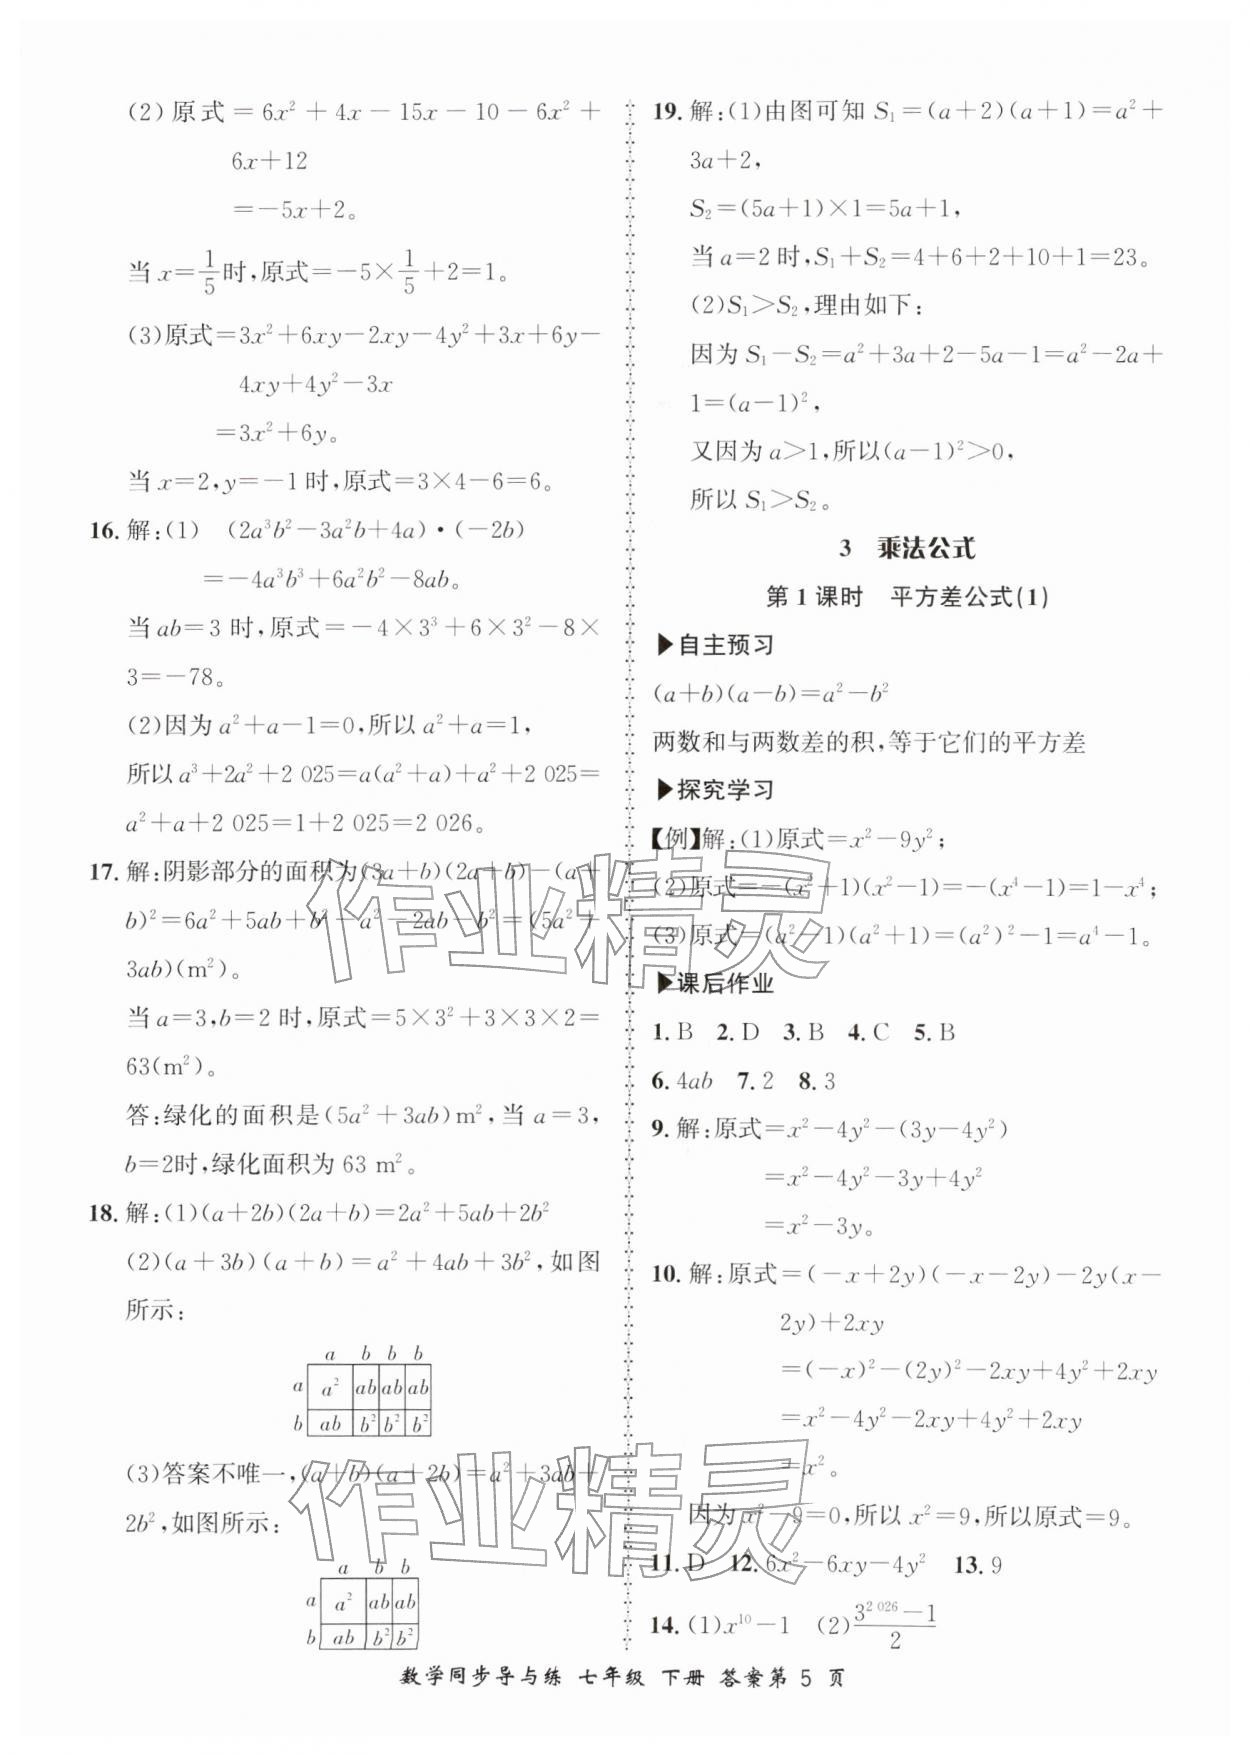 (2)原式=6x²+4x-15x-10-6x²+
6x+12
=-5x+2。
当x=1/5时,原式=-5×1/5+2=1。
(3)原式=3x²+6xy-2xy-4y²+3x+6y-
4xy+4y²-3x
=3x²+6y。
当x=2,y=-1时,原式=3×4-6=6。
16.解:(1) (2a³b²-3a²b+4a)·(-2b)
=-4a³b³+6a²b²-8ab。
当ab=3时,原式=-4×3³+6×3²-8×
3=-78。
(2)因为a²+a-1=0,所以a²+a=1,
所以a³+2a²+2 025=a(a²+a)+a²+2 025=
a²+a+2 025=1+2 025=2 026。
17.解:阴影部分的面积为(3a+b)(2a+b)-(a+
b)²=6a²+5ab+b²-a²-2ab-b²=(5a²+
3ab)(m²)。
当a=3,b=2时,原式=5×3²+3×3×2=
63(m²)。
答:绿化的面积是(5a²+3ab)m²,当a=3,
b=2时,绿化面积为63 m²。
18.解:(1)(a+2b)(2a+b)=2a²+5ab+2b²
(2)(a+3b)(a+b)=a²+4ab+3b²,如图
所示:
a b b b
a a² ab ab ab
b ab b² b² b²
(3)答案不唯一,(a+b)(a+2b)=a²+3ab+
2b²,如图所示:
a b b
a a² ab ab
b ab b² b²
19.解:(1)由图可知S₁=(a+2)(a+1)=a²+
3a+2,
S₂=(5a+1)×1=5a+1,
当a=2时,S₁+S₂=4+6+2+10+1=23。
(2)S₁>S₂,理由如下:
因为S₁-S₂=a²+3a+2-5a-1=a²-2a+
1=(a-1)²,
又因为a>1,所以(a-1)²>0,
所以S₁>S₂。
3 乘法公式
第1课时 平方差公式(1)
▶自主预习
(a+b)(a-b)=a²-b²
两数和与两数差的积,等于它们的平方差
▶探究学习
【例】解:(1)原式=x²-9y²;
(2)原式=-(x²+1)(x²-1)=-(x⁴-1)=1-x⁴;
(3)原式=(a²-1)(a²+1)=(a²)²-1=a⁴-1。
▶课后作业
1.B 2.D 3.B 4.C 5.B
6.4ab 7.2 8.3
9.解:原式=x²-4y²-(3y-4y²)
=x²-4y²-3y+4y²
=x²-3y。
10.解:原式=(-x+2y)(-x-2y)-2y(x-
2y)+2xy
=(-x)²-(2y)²-2xy+4y²+2xy
=x²-4y²-2xy+4y²+2xy
=x²。
因为x²-9=0,所以x²=9,所以原式=9。
11.D 12.6x²-6xy-4y² 13.9
14.(1)x¹⁰-1 (2)(3²⁰²⁶-1)/2
数学同步导与练 七年级 下册 答案第 5 页
作业精灵
作业精灵